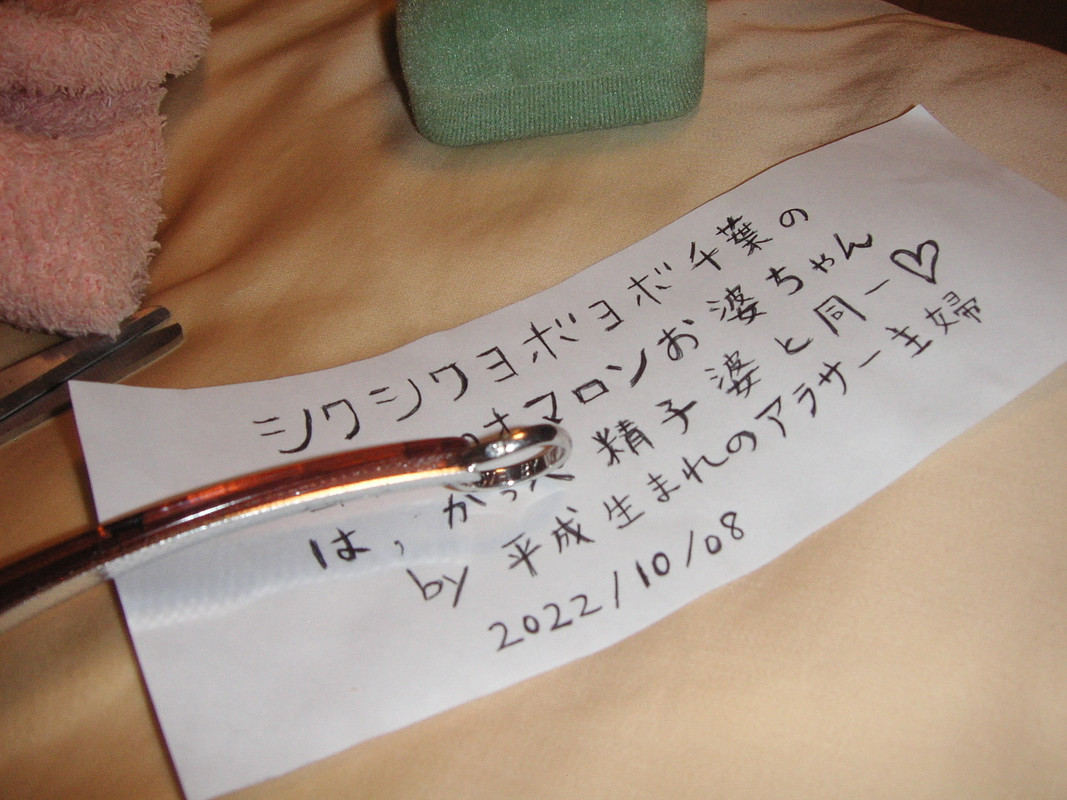 シワシワヨボヨボ千葉の
マロンお婆ちゃん
は、 精子婆と同一♡
by 平成生まれのアラサー主婦
2022/10/08